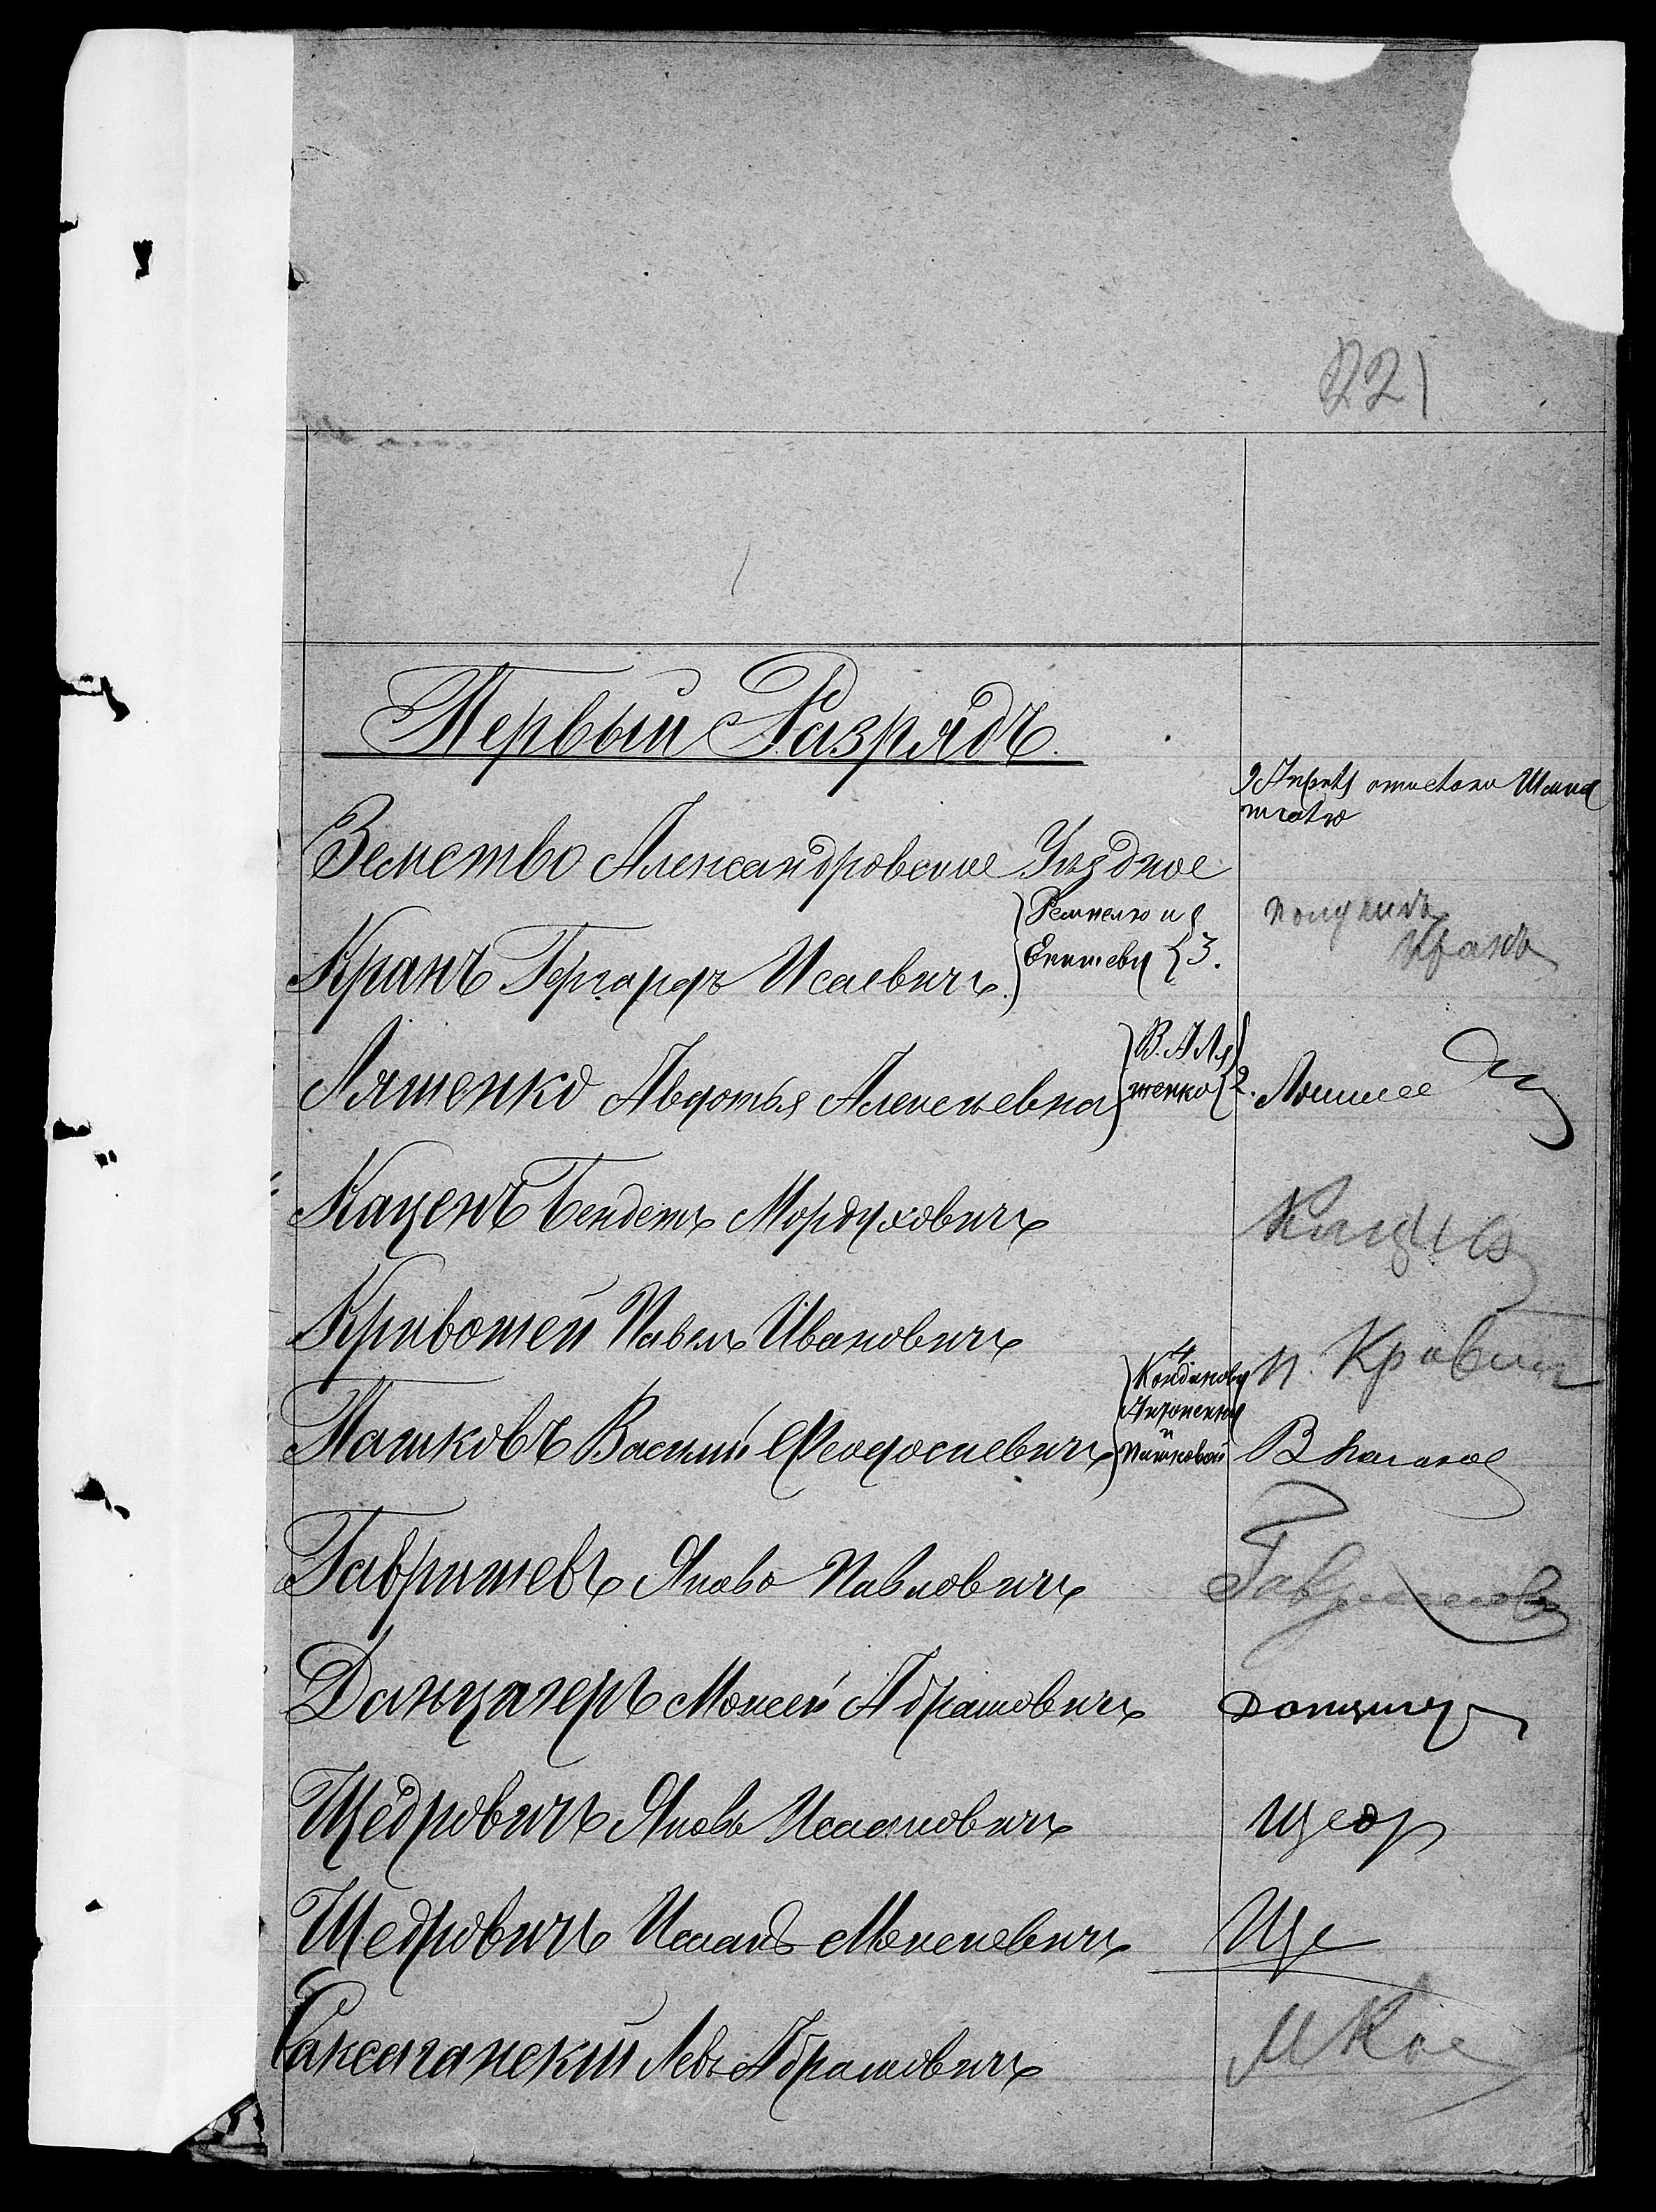 221
Первый Разрядъ.
Земство Александровское Уѣздное
Кранъ Гергардъ Исаевичъ. Ремпелю и Еппъ 3.
получилъ
Кранъ
Ляшенко Авдотья Алексѣевна В. А Ля
шенко 2.
Каценъ Бендетъ Мордуховичъ
Кацена
Кривошеи Павелъ Ивановичъ
П. Кривош
Пашковъ Василий Феодосиевичъ
и Пашковой
В Пашков
Гавришевъ Яковъ Павловичъ
Гавришевъ
Данцигеръ Моисей Абрамовичъ
Данцигер
Щедровичъ Яковъ Исааковичъ
Щедр
Щедровичъ Исаакъ Моисеевичъ
Ще
Саксаганский Левъ Абрамовичъ